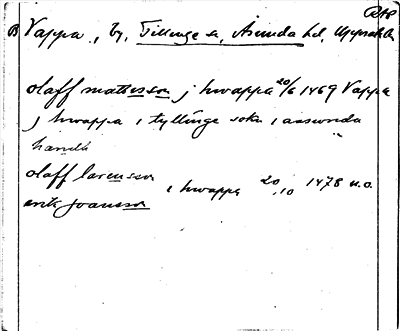 B Vappa, by, Tillinge sn, Åsunda hd, Uppsala
olaff matisson j hwappa 20/6 1469 Vappa
j hwappa i tyllinge sokn i assunda
häradh
olaff larensson
i hwappa 20/10 1478 u.o.
erik joansson